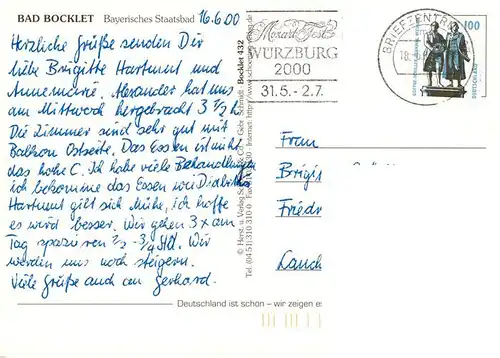 BAD BOCKLET Bayerisches Staatsbad 16.6.00
Herzliche Grüße senden Dir
liebe Brigitte Hartmut und
Annemarie. Alexander hat uns
am Mittwoch hergebracht 3 1/2 h.
Die Zimmer sind sehr gut mit
Balkon Ostseite. Das Essen ist nicht
das hohe C. Ich habe viele Behandlungen
ich bekomme das Essen wie Diabetes
Hartmut gibt sich Mühe, ich hoffe
es wird besser. Wir gehen 3 x am
Tag spazieren 1/2 - 3/4 Std. Wir
werden uns noch steigern.
Viele Grüße auch an Gerhard.
Bocklet 432
Mozart Fest
WÜRZBURG
2000
31.5. - 2.7.
BRIEFZENTR
100
Frau
Brigi
Friedr
Lauch
Deutschland ist schön – wir zeigen e